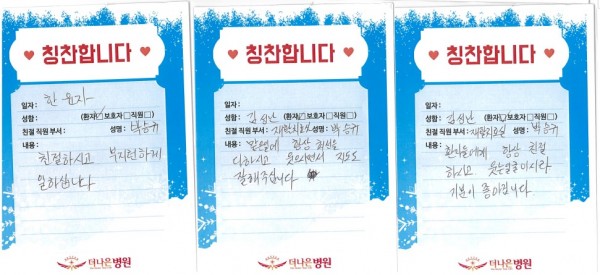 ♥ 칭찬합니다 ♥
한 윤자
일자:
성함: (환자☑ 보호자☐ 직원☐)
친절 직원 부서: 성명: 박승귀
내용:
친절하시고 부지런하게
일하십니다
더나은병원
♥ 칭찬합니다 ♥
일자:
성함: 김성난 (환자☑ 보호자☐ 직원☐)
친절 직원 부서: 재활치료실 성명: 박승귀
내용: 맡은일에 항상 최선을
다하시고 웃으시면서 지도도
잘해주십니다
더나은병원
♥ 칭찬합니다 ♥
일자:
성함: 김성난 (환자☑ 보호자☐ 직원☐)
친절 직원 부서: 재활치료실 성명: 박승귀
내용: 환자들에게 항상 친절
하시고 웃는얼굴이시라
기분이 좋아집니다.
더나은병원